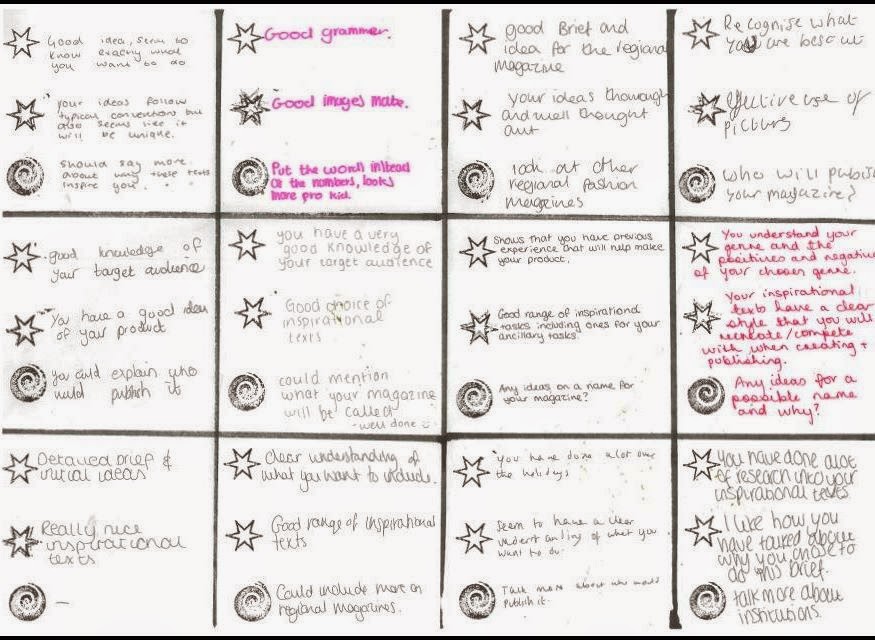 Good idea, seem to
know exactly what
you want to do
your ideas follow
typical conventions but
also seems like it
will be unique.
should say more
about why these texts
inspire you.
Good grammer.
Good images mate.
Put the words instead
of the numbers, looks
more pro kid.
good Brief and
idea for the regional
magazine
your ideas thorough
and well thought
out
look at other
regional fashion
magazines
Recognise what
you are best at
effective use of
pictures
who will publish
your magazine?
good knowledge of
your target audience
You have a good idea
of your product
you could explain who
would publish it
you have a very
good knowledge of
your target audience
Good choice of
inspirational
texts
could mention
what your magazine
will be called
- well done
Shows that you have previous
experience that will help make
your product.
Good range of inspirational
tasks including ones for your
ancillary tasks.
Any ideas on a name for
your magazine?
You understand your
genre and the
positives and negatives
of your chosen genre.
Your inspirational
texts have a clear
style that you will
recreate/compete
with when creating +
publishing.
Any ideas for a
possible name
and why?
Detailed brief &
initial ideas
Really nice
inspirational
texts
—
Clear understanding of
what you want to include.
Good range of inspirational
texts
Could include more on
regional magazines.
You have done alot over
the holidays
Seem to have a clear
understanding of what you
want to do.
Talk more about who would
publish it.
You have done alot
of research into your
inspirational texts
I like how you
have talked about
why you chose to
do this brief.
talk more about
institutions.